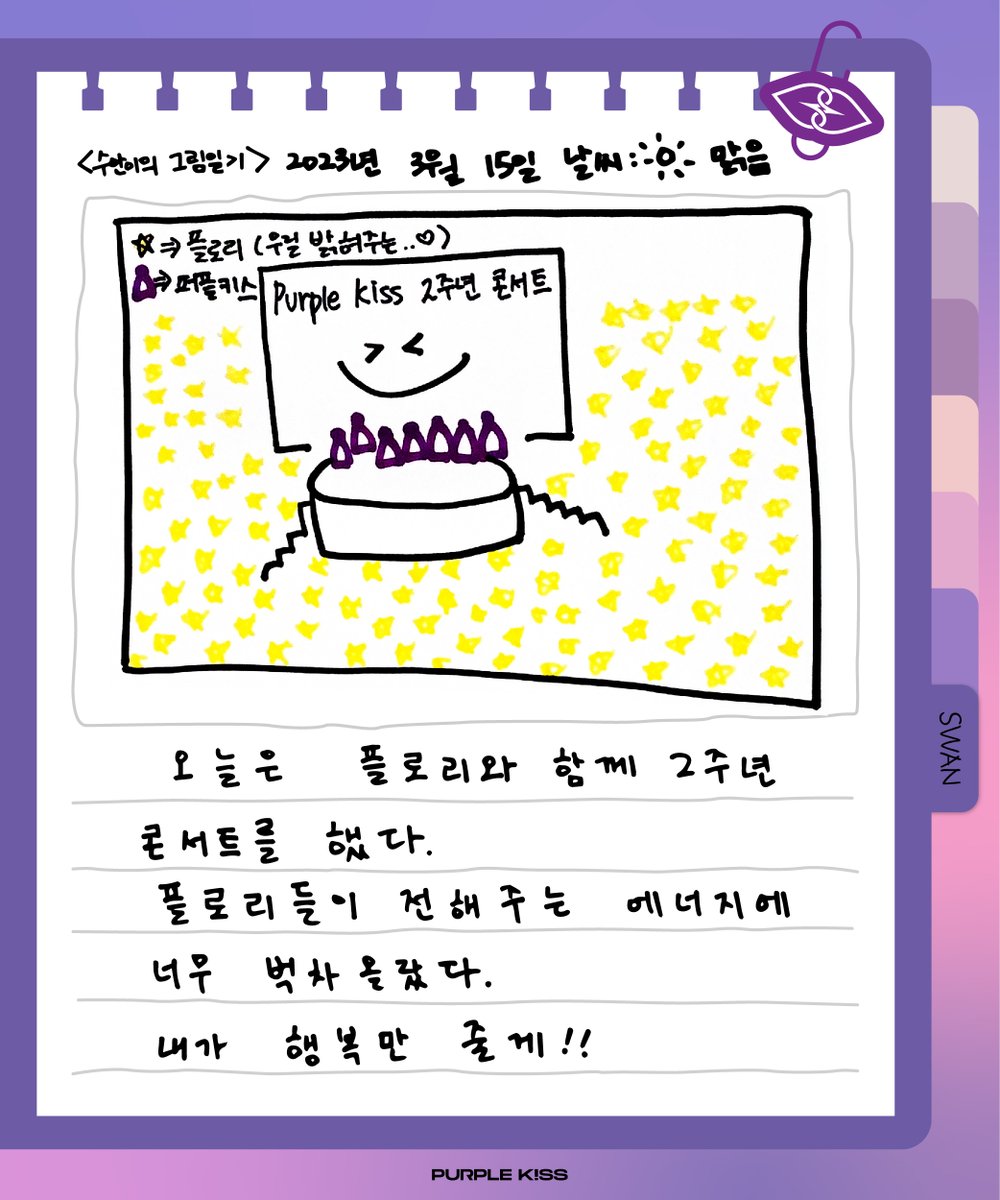 <수안이의 그림일기> 2023년 3월 15일 날씨: 맑음
⇒ 플로리 (우릴 밝혀주는..♡)
⇒ 퍼플키스
Purple Kiss 2주년 콘서트
오늘은 플로리와 함께 2주년
콘서트를 했다.
플로리들이 전해주는 에너지에
너무 벅차올랐다.
내가 행복만 줄게!!
SWAN
PURPLE K!SS